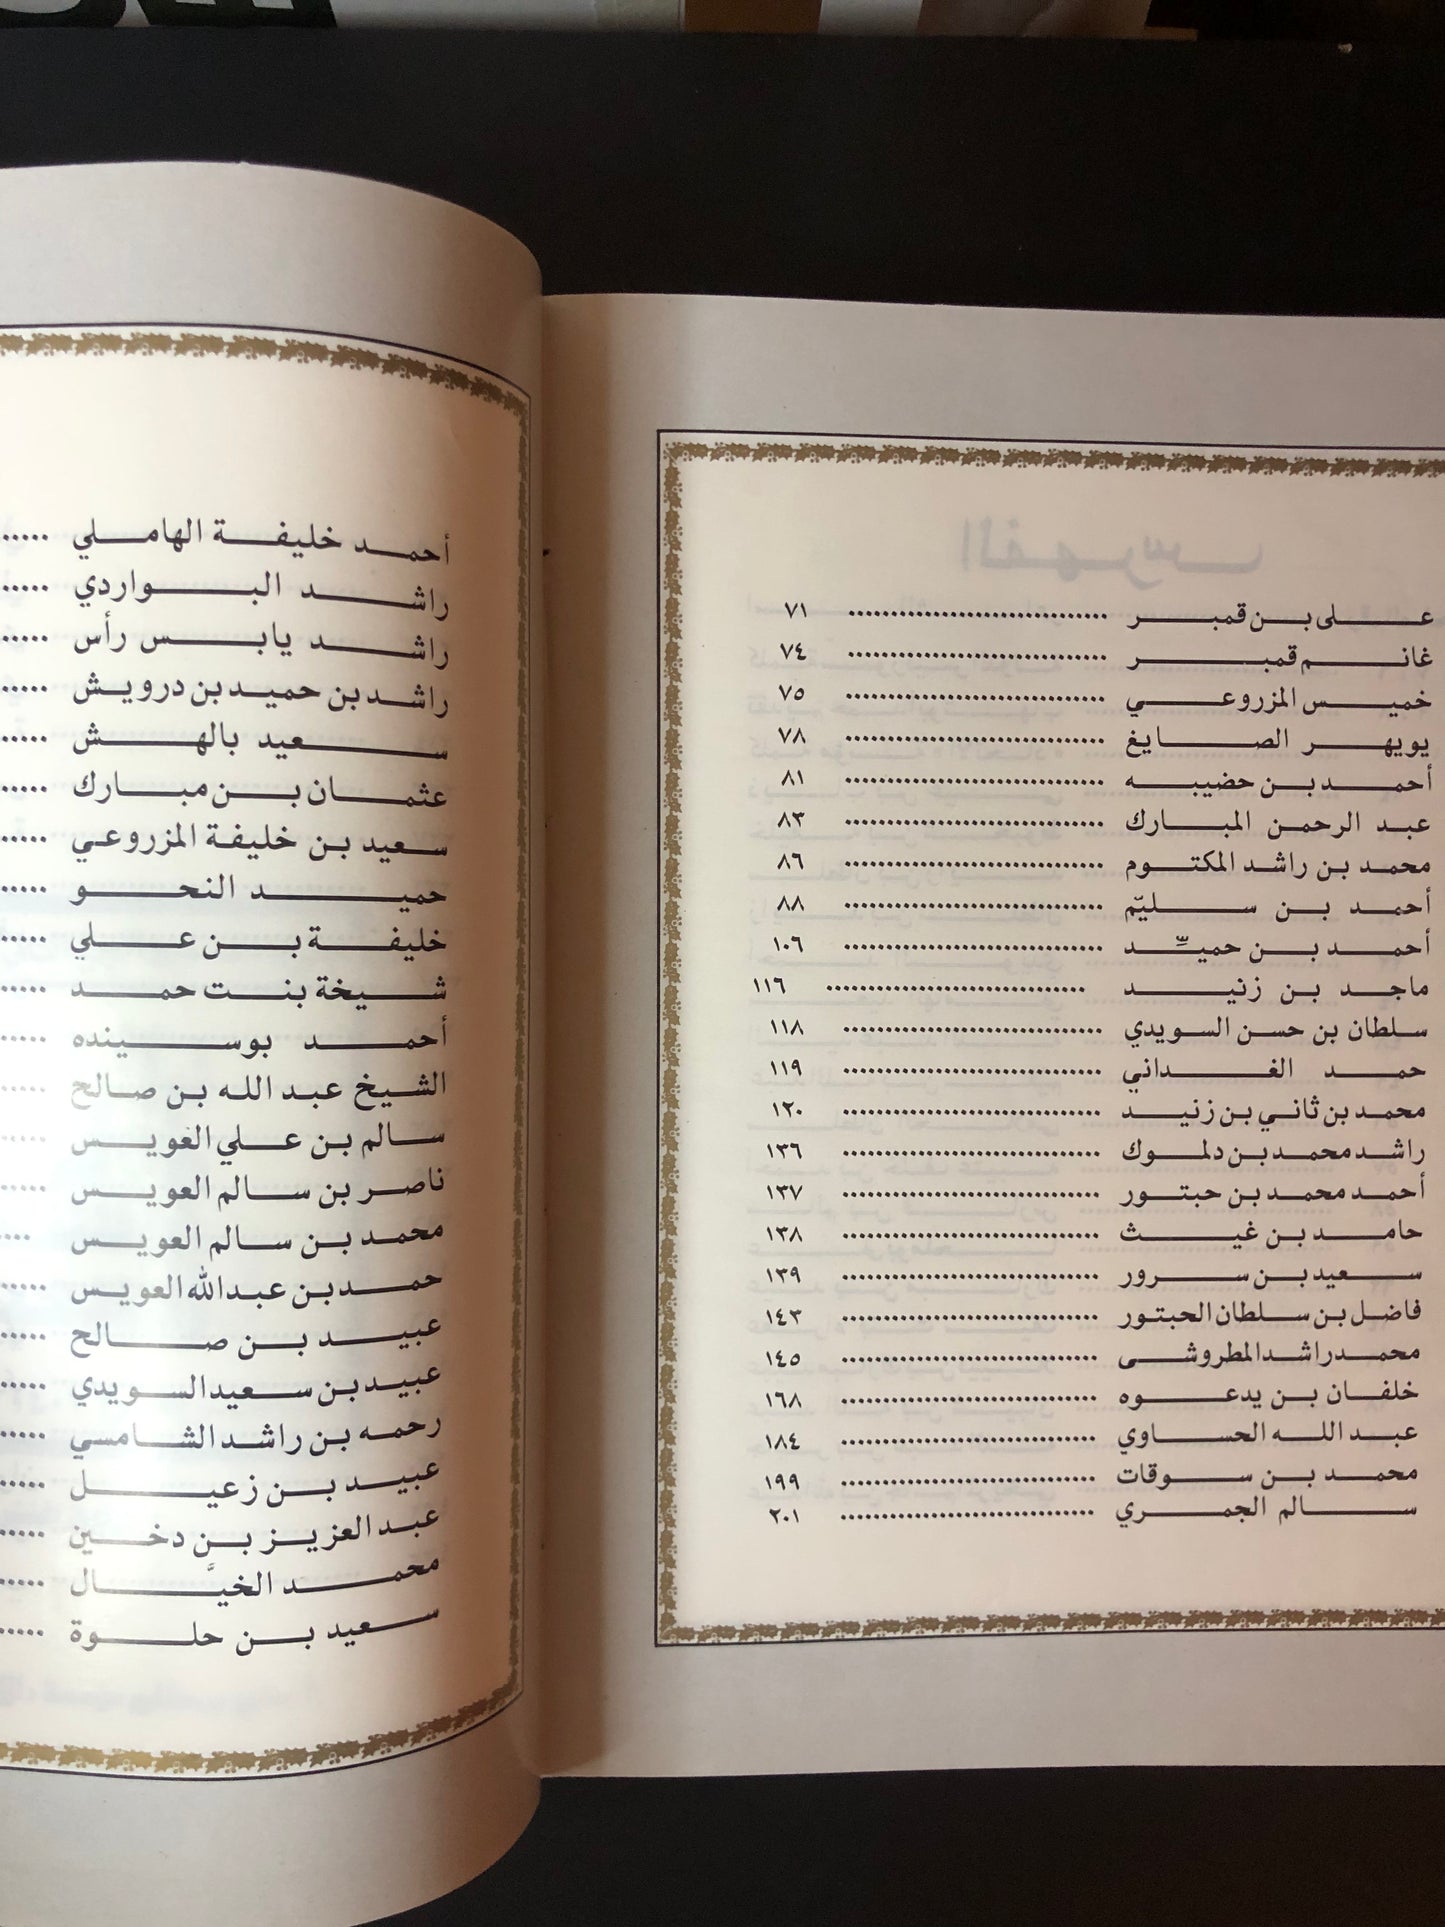 علي بن قمبر ........ ٧١
غانم قمبر ........ ٧٤
خميس المزروعي ........ ٧٥
يويهر الصايغ ........ ٧٨
أحمد بن حضيبه ........ ٨١
عبد الرحمن المبارك ........ ٨٣
محمد بن راشد المكتوم ........ ٨٦
أحمد بن سليّم ........ ٨٨
أحمد بن حميّد ........ ١٠٦
ماجد بن زنيد ........ ١١٦
سلطان بن حسن السويدي ........ ١١٨
حمد الغداني ........ ١١٩
محمد بن ثاني بن زنيد ........ ١٢٠
راشد محمد بن دلموك ........ ١٣٦
أحمد محمد بن حبتور ........ ١٣٧
حامد بن غيث ........ ١٣٨
سعيد بن سرور ........ ١٣٩
فاضل بن سلطان الحبتور ........ ١٤٣
محمد راشد المطروشى ........ ١٤٥
خلفان بن يدعوه ........ ١٦٨
عبد الله الحساوي ........ ١٨٤
محمد بن سوقات ........ ١٩٩
سالم الجمري ........ ٢٠١
أحمد خليفة الهاملي ........
راشد البواردي ........
راشد يابس رأس ........
راشد بن حميد بن درويش ........
سعيد بالهش ........
عثمان بن مبارك ........
سعيد بن خليفة المزروعي ........
حميد النحو ........
خليفة بن علي ........
شيخة بنت حمد ........
أحمد بوسينده ........
الشيخ عبد الله بن صالح ........
سالم بن علي العويس ........
ناصر بن سالم العويس ........
محمد بن سالم العويس ........
حمد بن عبدالله العويس ........
عبيد بن صالح ........
عبيد بن سعيد السويدي ........
رحمه بن راشد الشامسي ........
عبيد بن زعيل ........
عبد العزيز بن دخين ........
محمد الخيَّال ........
سعيد بن حلوة ........